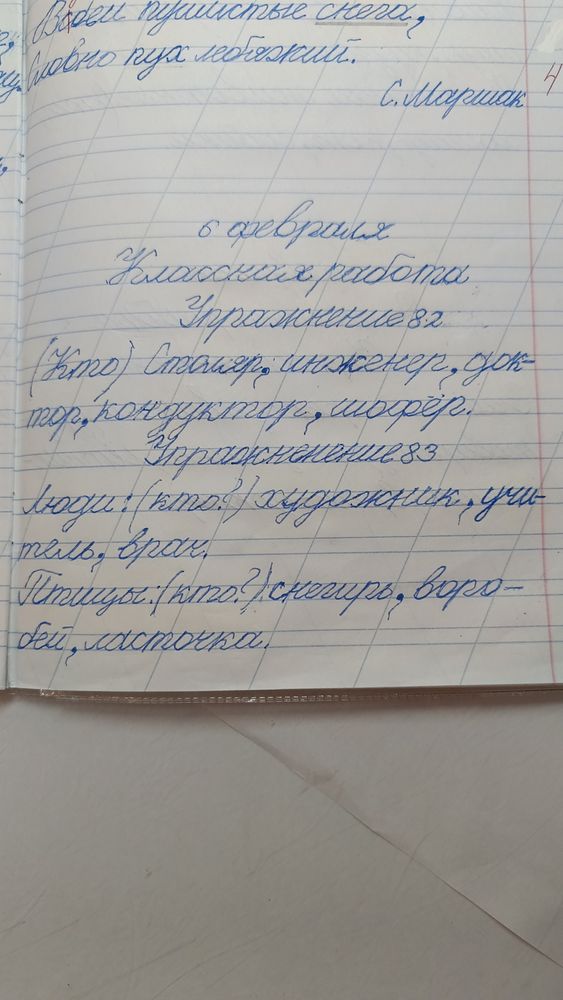 Вёдем пушистые снега,
Словно пух лебяжий.
С. Маршак
4
6 февраля
Классная работа
Упражнение 82
(Кто) Столяр, инженер, док-
тор, кондуктор, шофёр.
Упражненение 83
Люди: (кто?) художник, учи-
тель, врач.
Птицы: (кто?) снегирь, воро-
бей, ласточка.